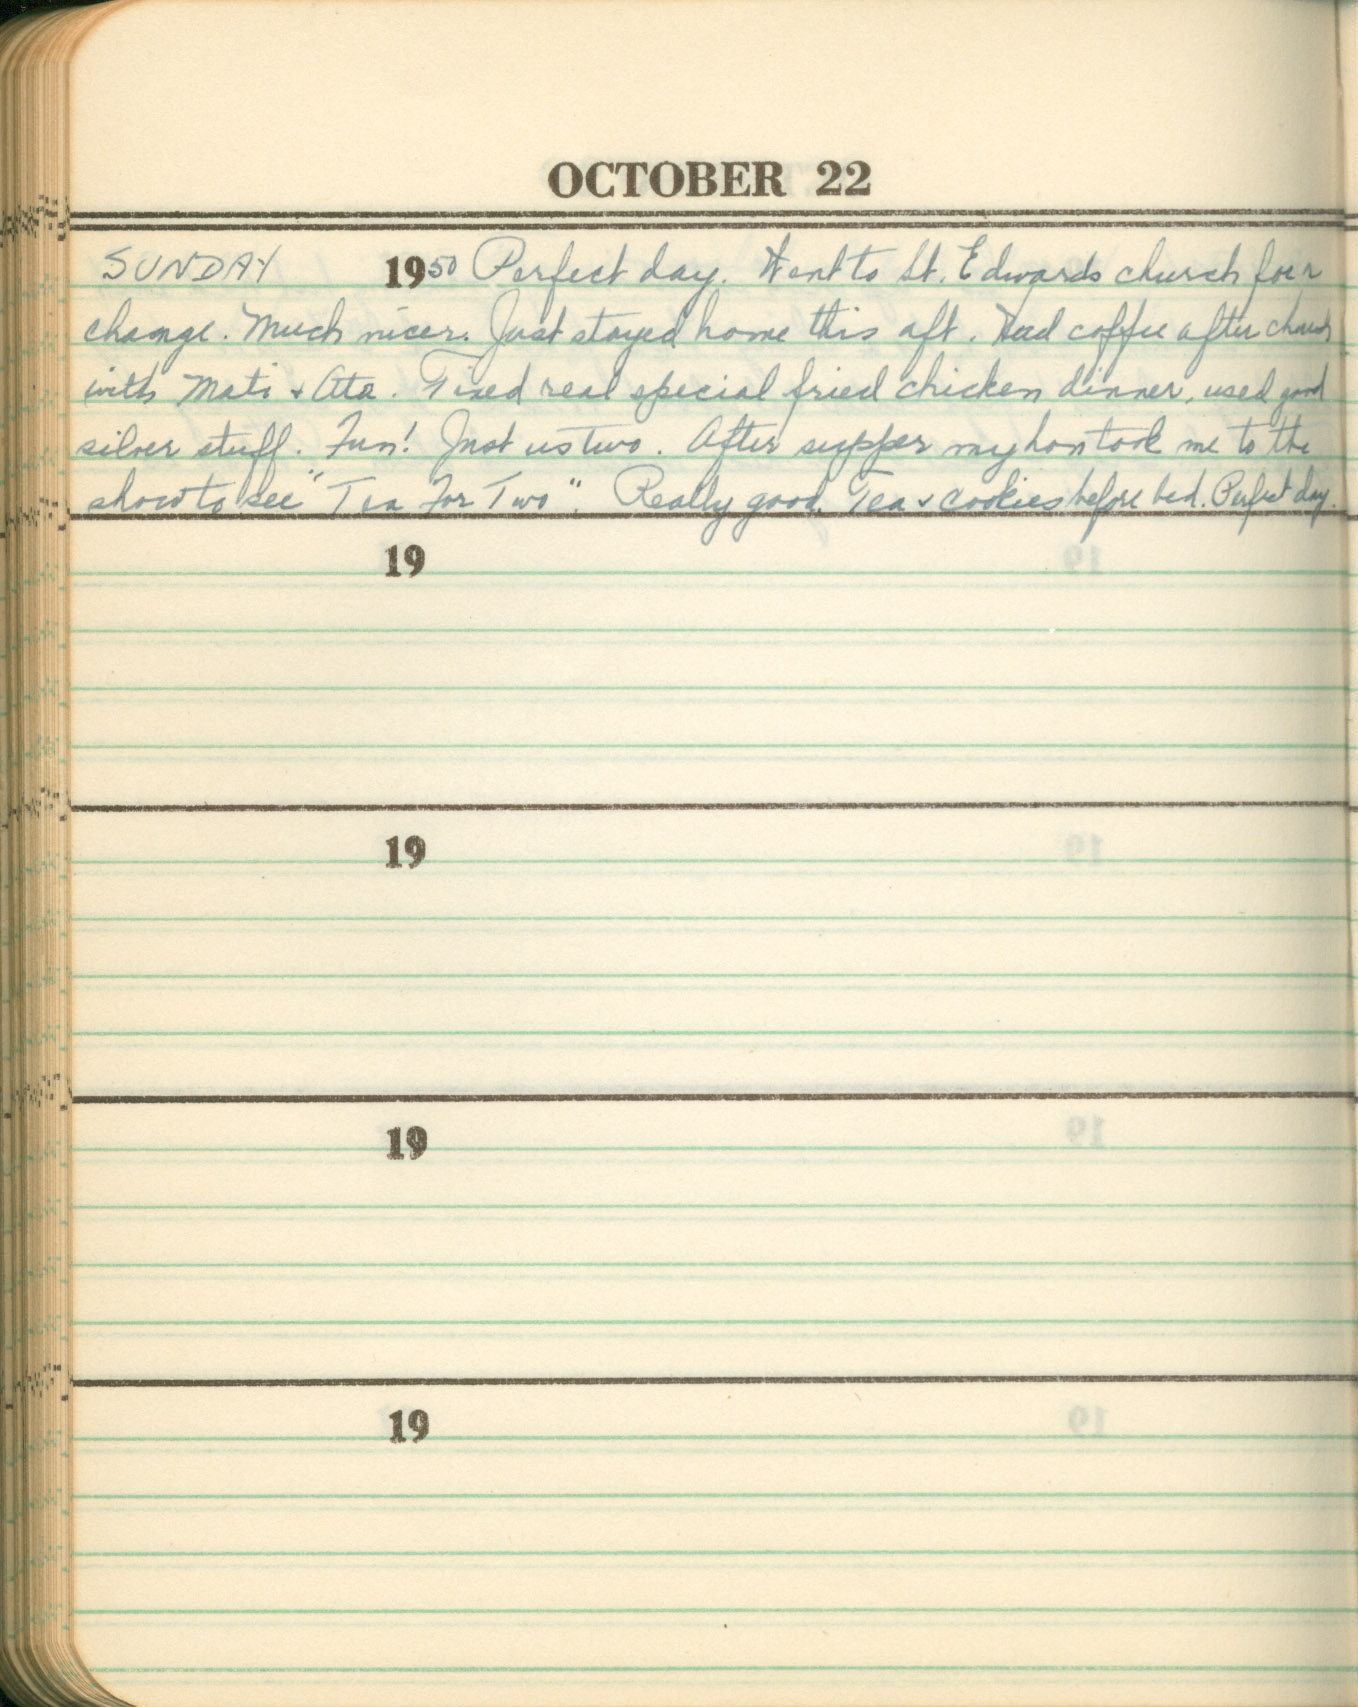 OCTOBER 22
SUNDAY 1950 Perfect day. Went to St. Edwards church for a
change. Much nicer. Just stayed home this aft. Had coffee after church
with Mati + Ata. Fixed real special fried chicken dinner, used good
silver stuff. Fun! Just us two. After supper my hon took me to the
show to see "Tea For Two". Really good. Tea + cookies before bed. Perfect day.
19
19
19
19